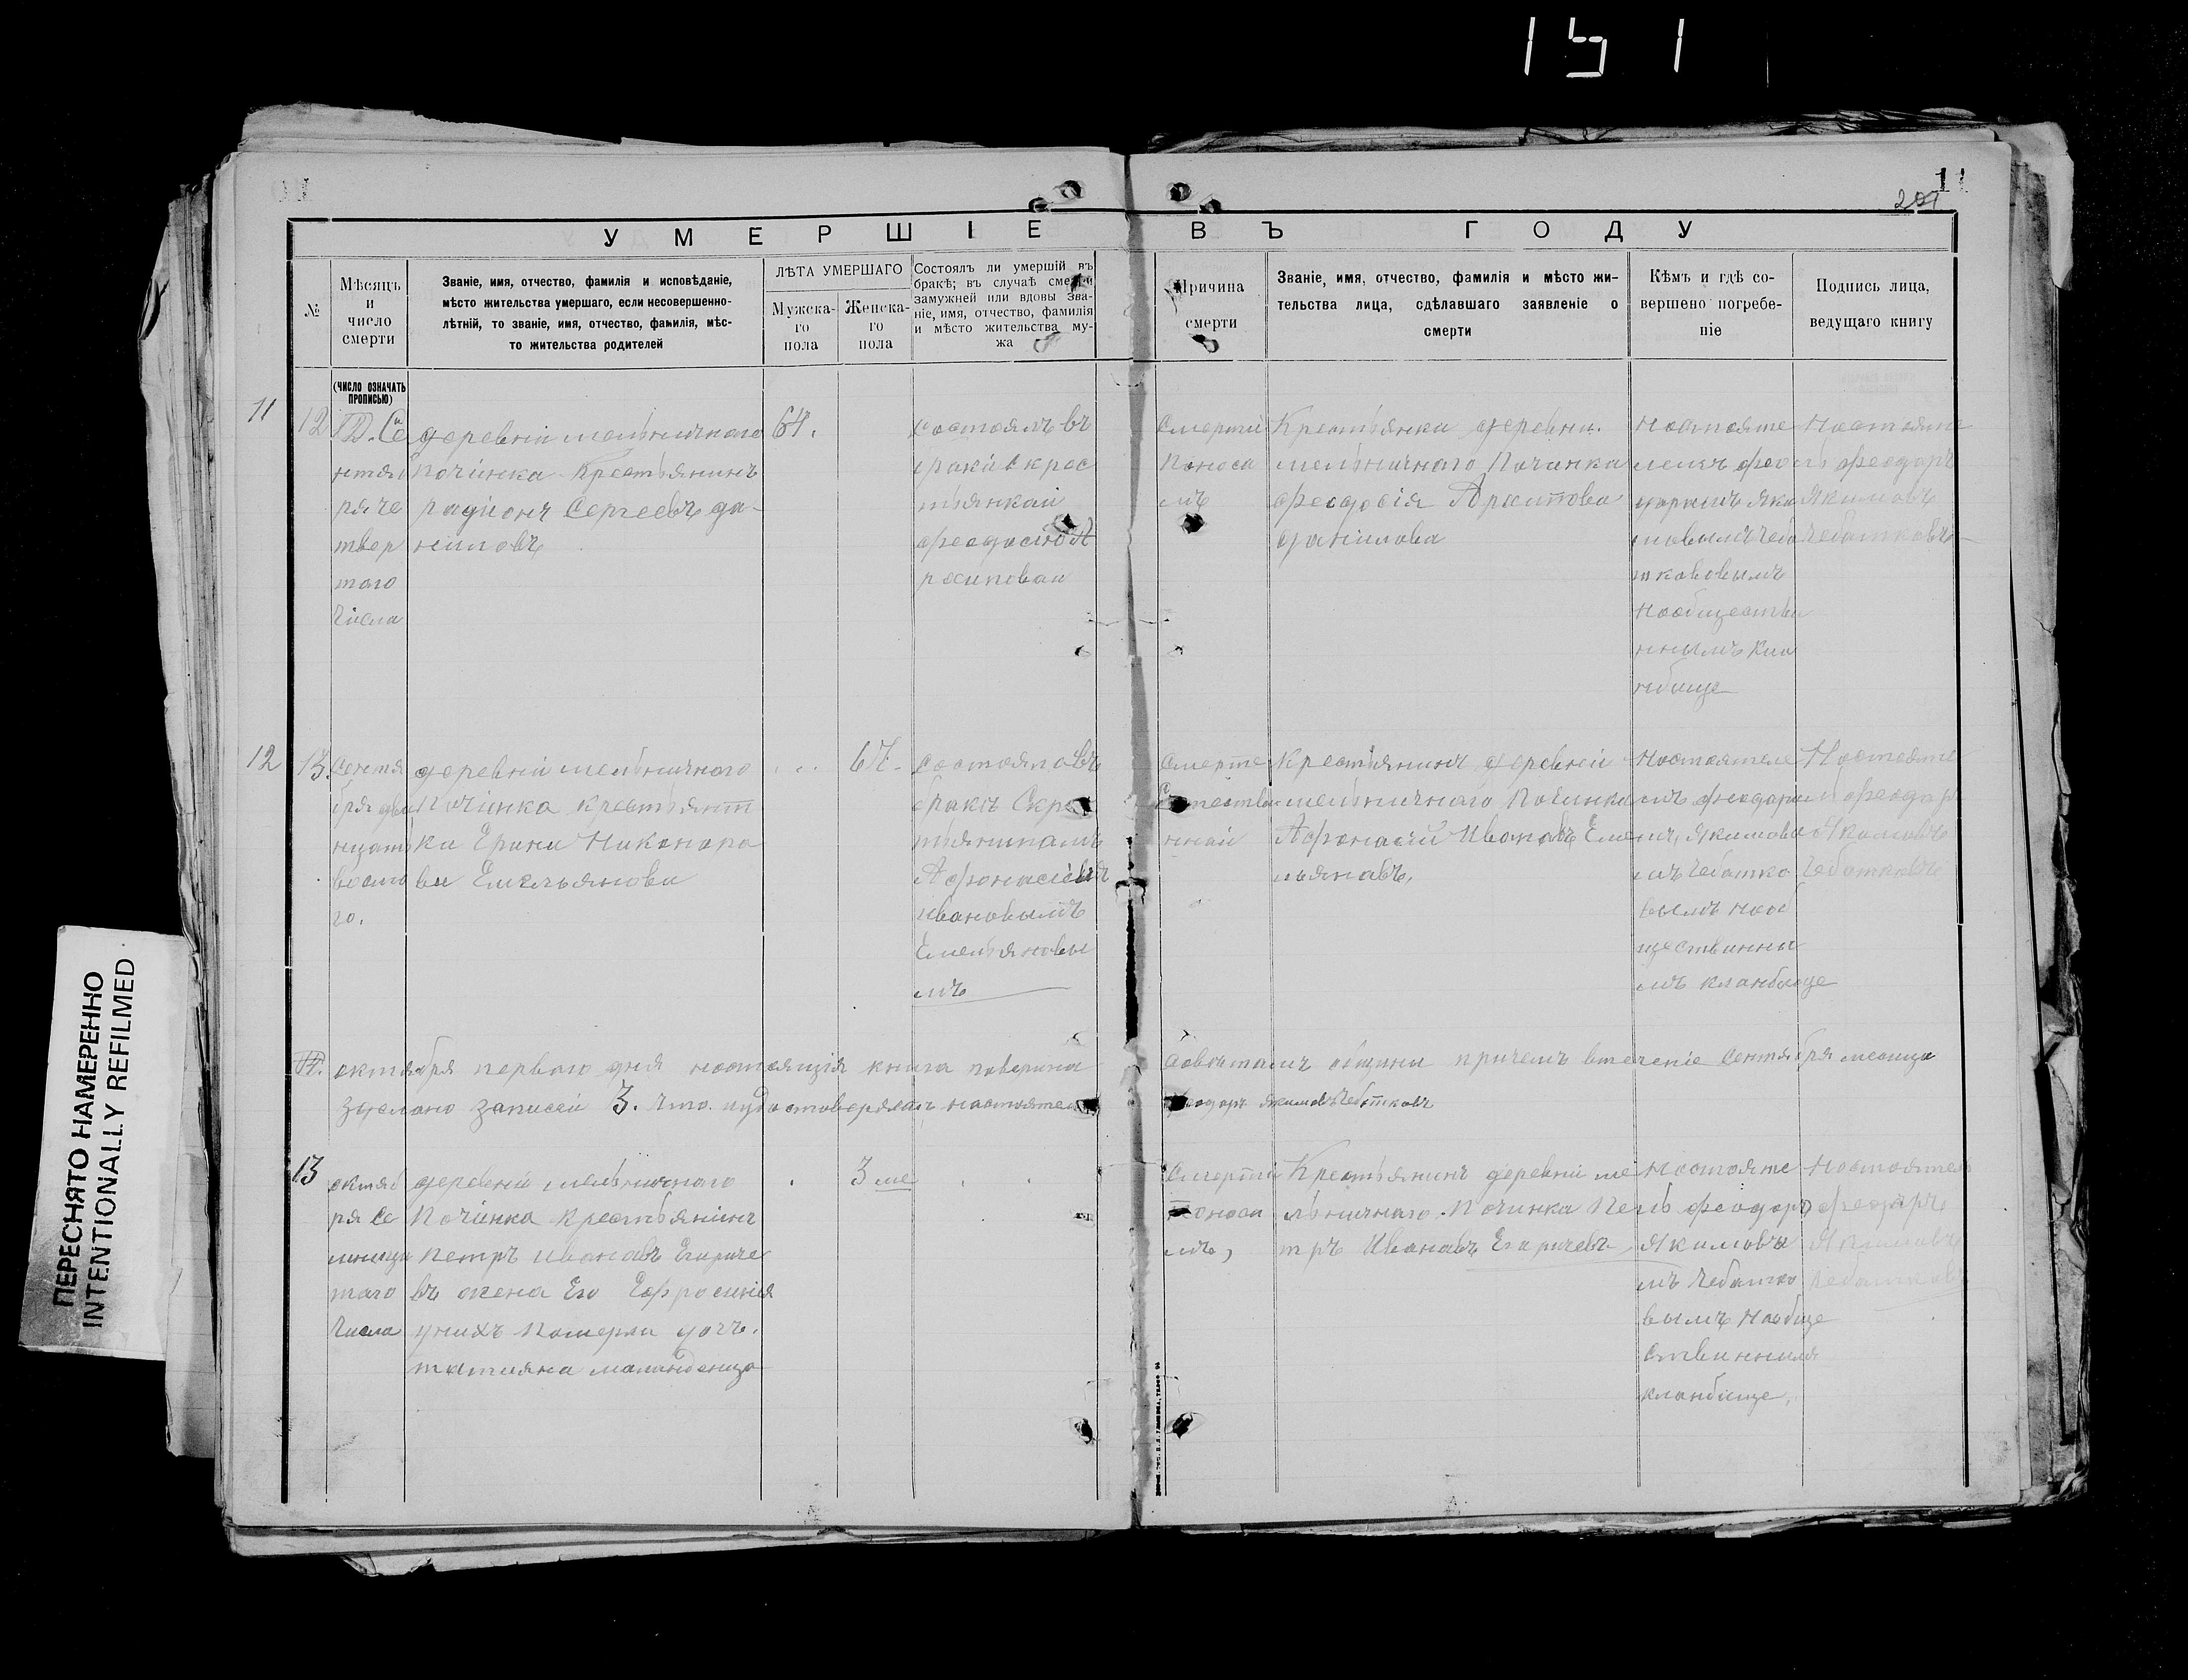 151
11
207
УМЕРШІЕ ВЪ ГОДУ
№
Мѣсяцъ
и
число
смерти
Званіе, имя, отчество, фамилія и исповѣданіе,
мѣсто жительства умершаго, если несовершенно-
лѣтній, то званіе, имя, отчество, фамилія, мѣс-
то жительства родителей
ЛѢТА УМЕРШАГО
Мужска-
го
пола
Женска-
го
пола
Состоялъ ли умершій въ
бракѣ; въ случаѣ смерти
замужней или вдовы зва-
ніе, имя, отчество, фамилія
и мѣсто жительства му-
жа
Причина
смерти
Званіе, имя, отчество, фамилія и мѣсто жи-
тельства лица, сдѣлавшаго заявленіе о
смерти
Кѣмъ и гдѣ со-
вершено погребе-
ніе
Подпись лица,
ведущаго книгу
(ЧИСЛО ОЗНАЧАТЬ
ПРОПИСЬЮ)
11
12
нтяб
ря че
твер
таго
числа
деревни мельничнаго
починка Крестьянинъ
радионъ Сергеевъ да-
ниловъ
64.
состоялъ въ
браки с крес
тьянкай
феодосией А
рхиповай
Смертий
Поноса
мъ
Крестьянка деревни.
мельничнаго Починка
феодосія Архипова
данилова
Настояте
лемъ фео
даромъ Яки
мовымъ Чеба
ткововымъ
Наобществи
ннымъ Кла
дбище
Настояте
ль феодаръ
Якимовъ
Чебатковъ
12
13.
Сентя
бря два
дцать
восмо
го.
деревни мельничнаго
Починка крестьянт
ка Ерина Никонора
ва Емельянова
67.
состояла въ
бракъ Скрес
тьянинамъ
Афонасіевы
Ивановымъ
Емельяновы
мъ
Смерте
Естестве
ннай
Крестьянинъ деревни
мельничнаго Починка
Афонасий Ивановъ, Еме
льянавъ.
Настоятеле
мъ феодаро
мъ, Якимовы
мъ Чебатко
вымъ Нооб
щественны
мъ кладбище
Настояте
ль феодар
Якимовъ
Чебатковъ
октября первого дня настоящія книга поверина Советамъ общины причемъ втечение Сентября месеца
зделано записей 3. что. иудостоверяемъ настоятель феодаръ якимовъ Чебатковъ
13
октяб
ря Се
мнаца
таго
Числа
деревни мельничнаго
Починка Крестьянинъ
Петръ Ивановъ Егориче
въ жена Его Ефросиния
унихъ Померла дочь.
татияна маладеница
3 ме
Смертий
Поноса
мъ,
Крестьянинъ деревни ме
льничнаго. Починка Пе
тръ Ивановъ Егоричевъ
Настояте
ль феодаръ
Якимовы
мъ Чебатко
вымъ Наобще
ственныя
кладбище,
Настоятель
феодаръ
Якимовъ
Чебатковъ
ПЕРЕСНЯТО НАМЕРЕННО
INTENTIONALLY REFILMED